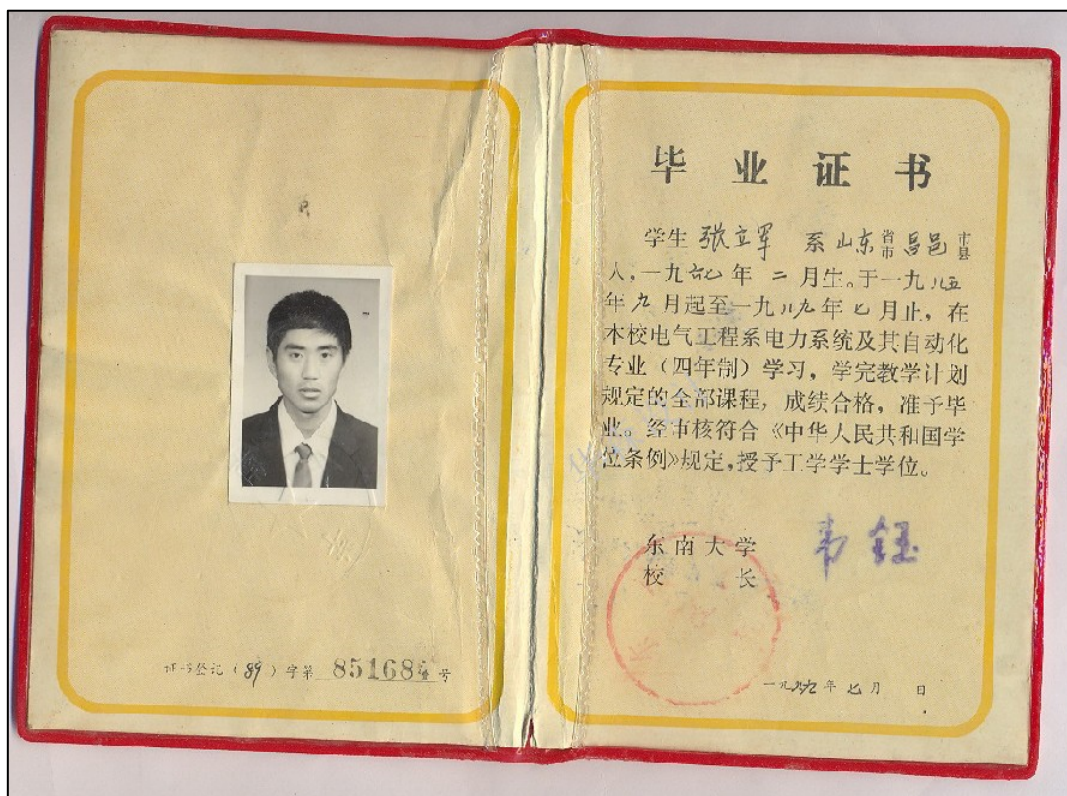 证书登记(89)字第 85168 号
毕业证书
学生 张立军 系 山东 省市 昌邑 市县
人,一九六七年 二 月生。于一九八五
年九月起至一九八九年七月止,在
本校电气工程系电力系统及其自动化
专业(四年制)学习,学完教学计划
规定的全部课程,成绩合格,准予毕
业。经审核符合《中华人民共和国学
位条例》规定,授予工学学士学位。
东南大学
校长
韦钰
一九八九年七月 日